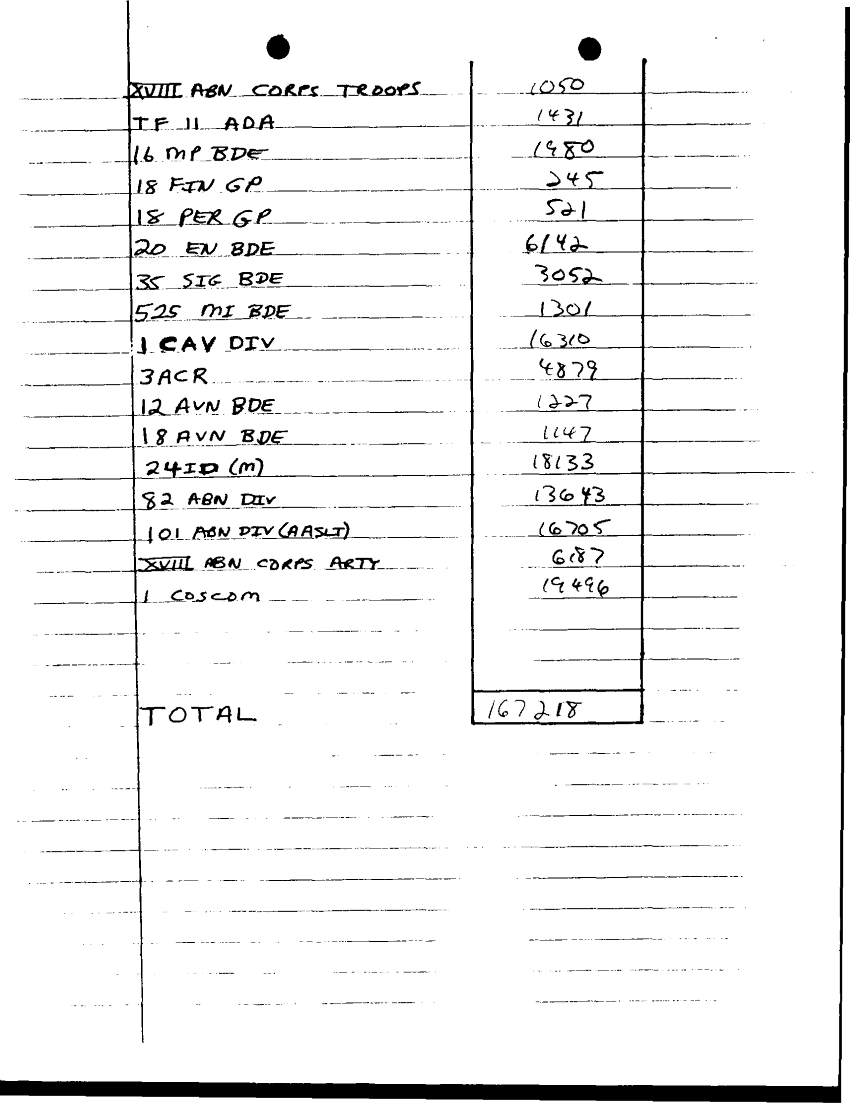 XVIII ABN CORPS TROOPS 1050
TF 11 ADA 1431
16 MP BDE 1980
18 FIN GP 245
18 PER GP 521
20 EN BDE 6142
35 SIG BDE 3052
525 MI BDE 1301
1 CAV DIV 16310
3ACR 4879
12 AVN BDE 1227
18 AVN BDE 1147
24 ID (M) 18133
82 ABN DIV 13643
101 ABN DIV (AASLT) 16705
XVIII ABN CORPS ARTY 6187
1 COSCOM 19496
TOTAL 167218